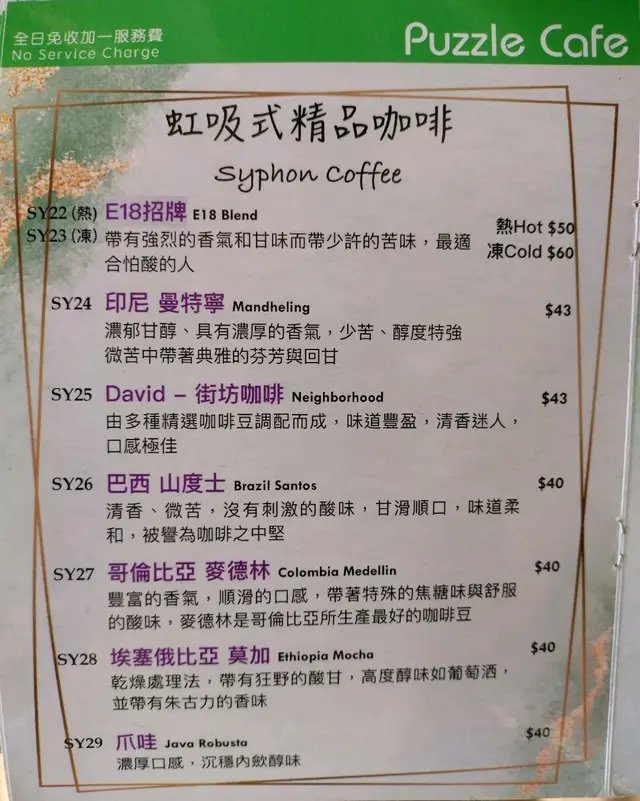 全日免收加一服務費
No Service Charge
Puzzle Cafe
虹吸式精品咖啡
Syphon Coffee
SY22 (熱) E18招牌 E18 Blend
SY23 (凍) 帶有強烈的香氣和甘味而帶少許的苦味，最適
合怕酸的人
熱Hot $50
凍Cold $60
SY24 印尼 曼特寧 Mandheling $43
濃郁甘醇、具有濃厚的香氣，少苦、醇度特強
微苦中帶著典雅的芬芳與回甘
SY25 David – 街坊咖啡 Neighborhood $43
由多種精選咖啡豆調配而成，味道豐盈，清香迷人，
口感極佳
SY26 巴西 山度士 Brazil Santos $40
清香、微苦，沒有刺激的酸味，甘滑順口，味道柔
和，被譽為咖啡之中堅
SY27 哥倫比亞 麥德林 Colombia Medellin $40
豐富的香氣，順滑的口感，帶著特殊的焦糖味與舒服
的酸味，麥德林是哥倫比亞所生產最好的咖啡豆
SY28 埃塞俄比亞 莫加 Ethiopia Mocha $40
乾燥處理法，帶有狂野的酸甘，高度醇味如葡萄酒，
並帶有朱古力的香味
SY29 爪哇 Java Robusta $40
濃厚口感，沉穩內歛醇味